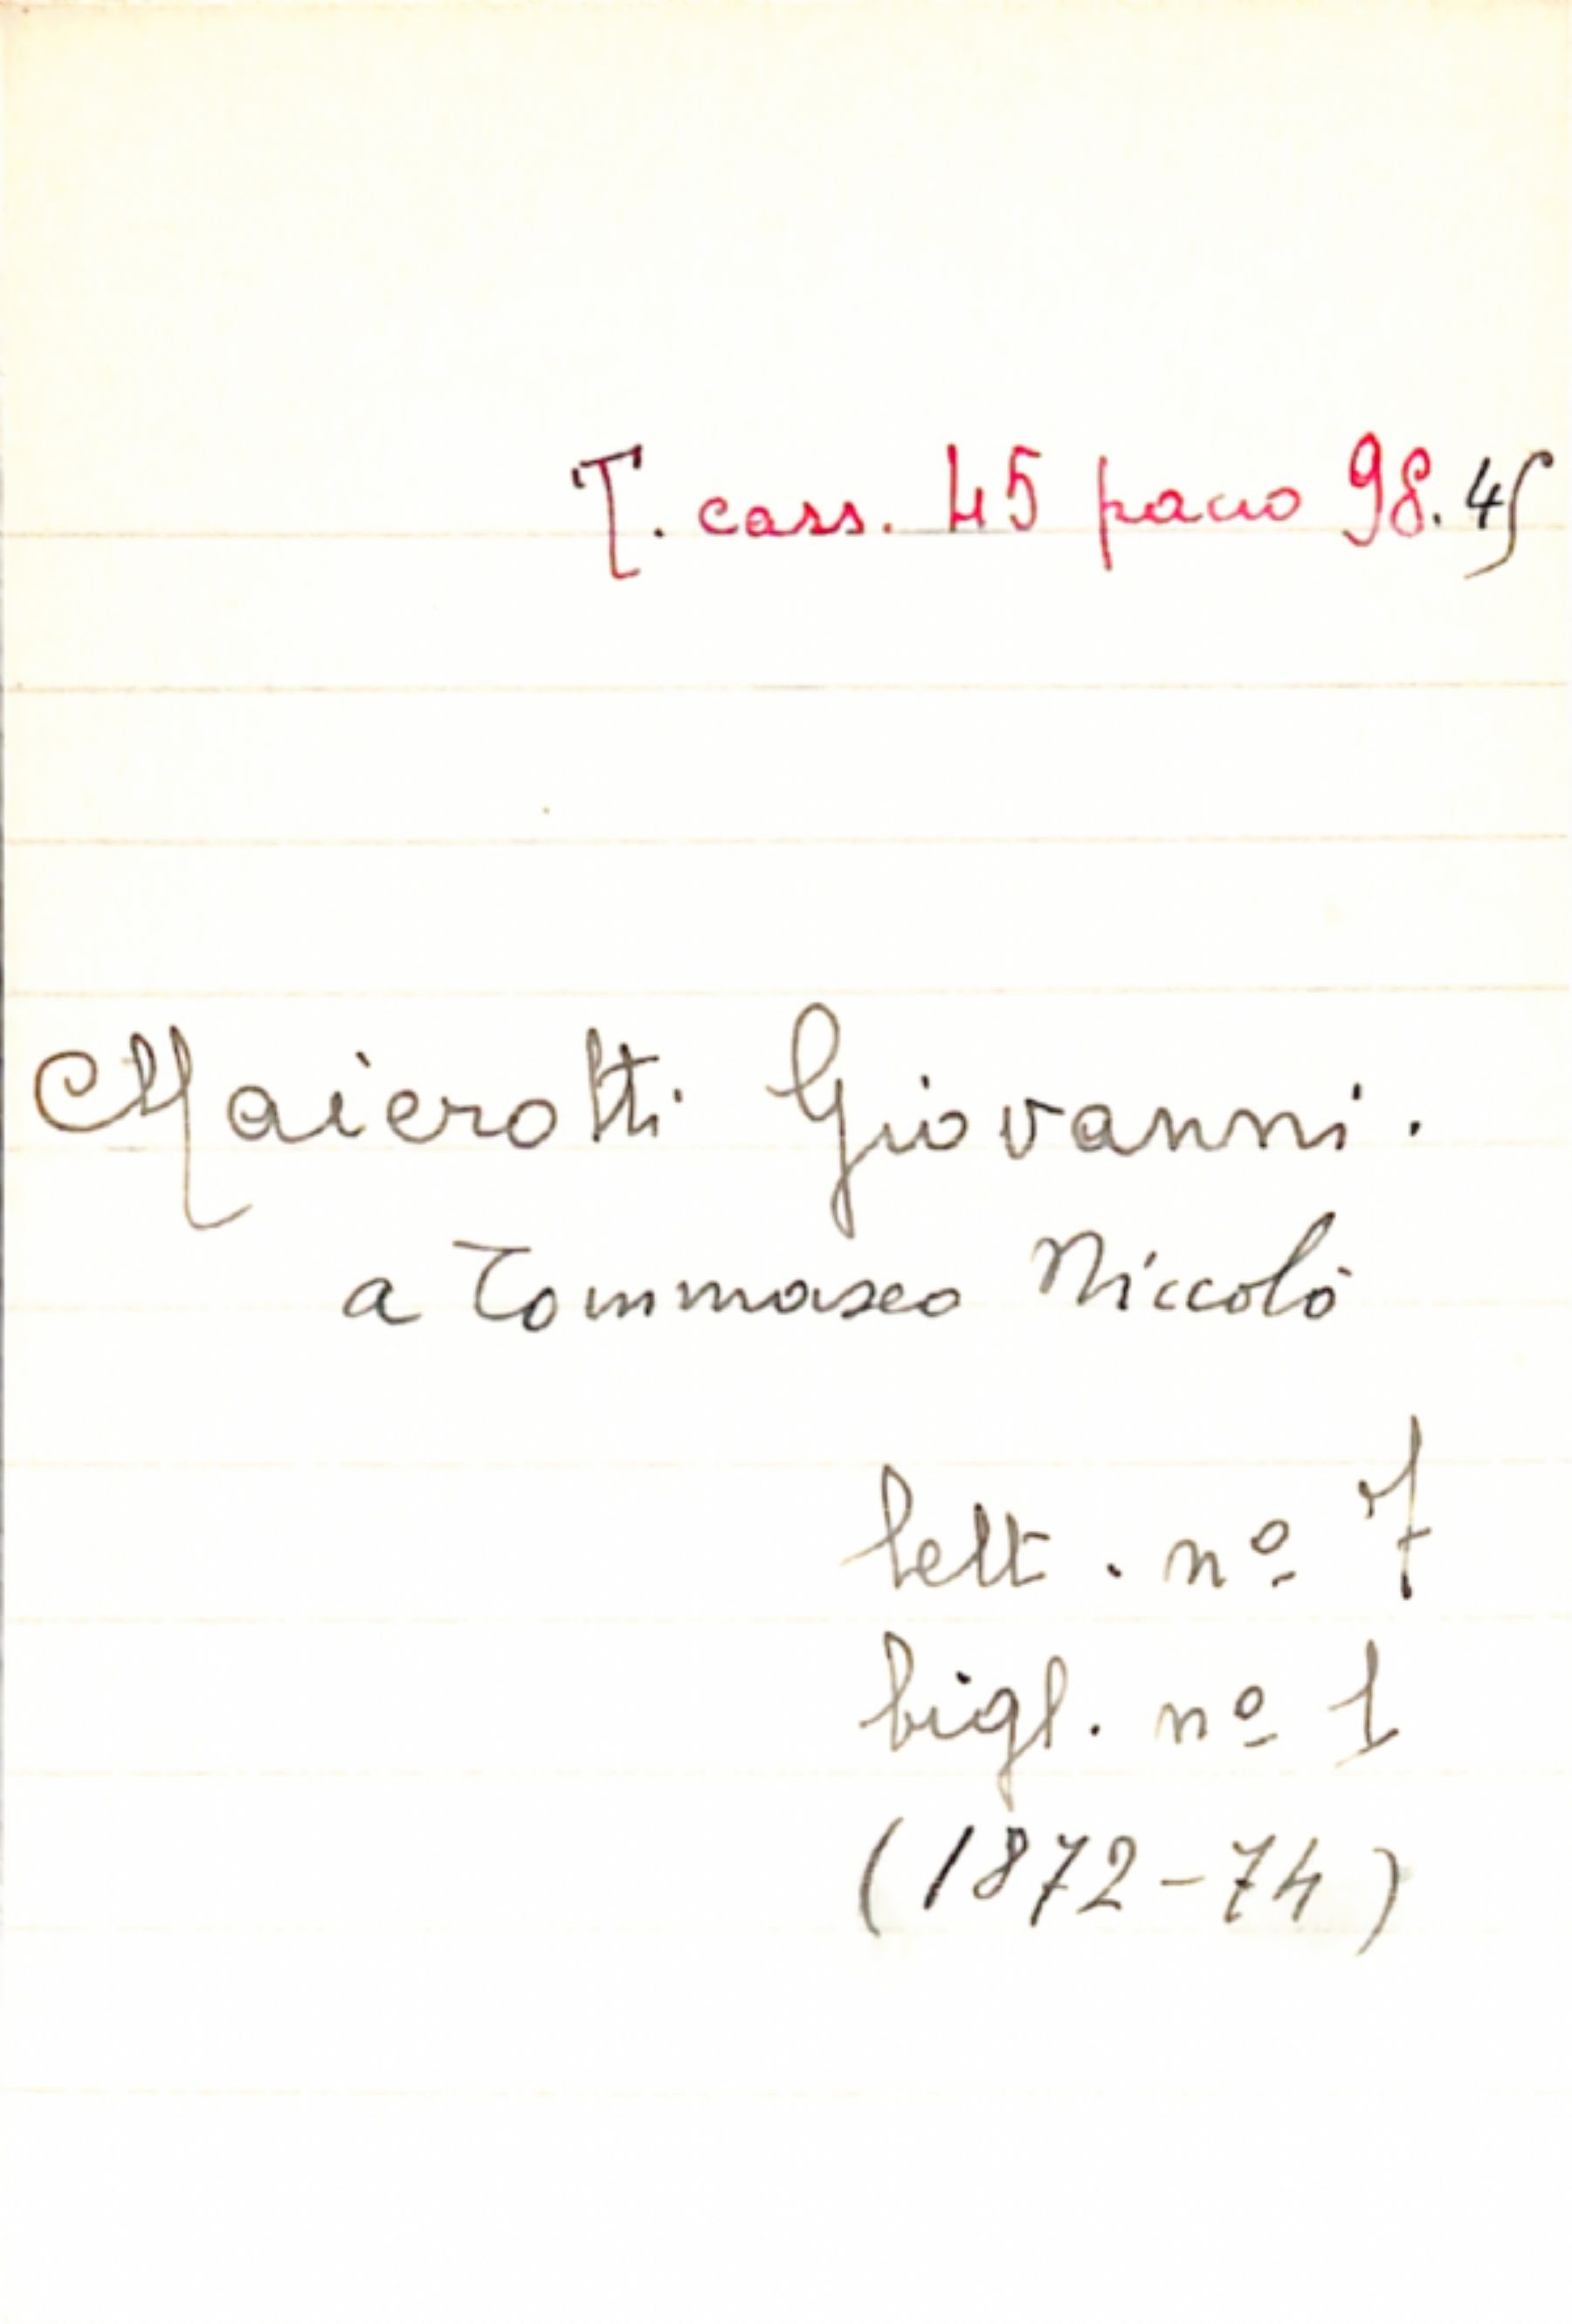 T. cass. 45 pacco 98.45
Maierotti Giovanni.
a Tommaseo Niccolò
lett. nº 7
bigl. nº 1
(1872-74)